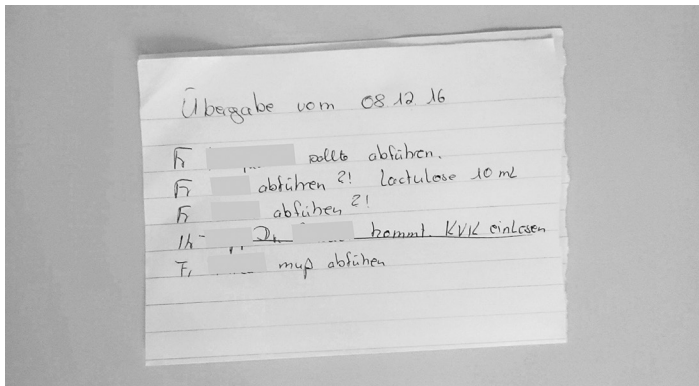 Übergabe vom 08 12 16
Fr sollte abführen.
Fr abführen ?! Lactulose 10 ml
Fr abführen ?!
Dr. kommt. KVK einlesen
Fr muß abführen